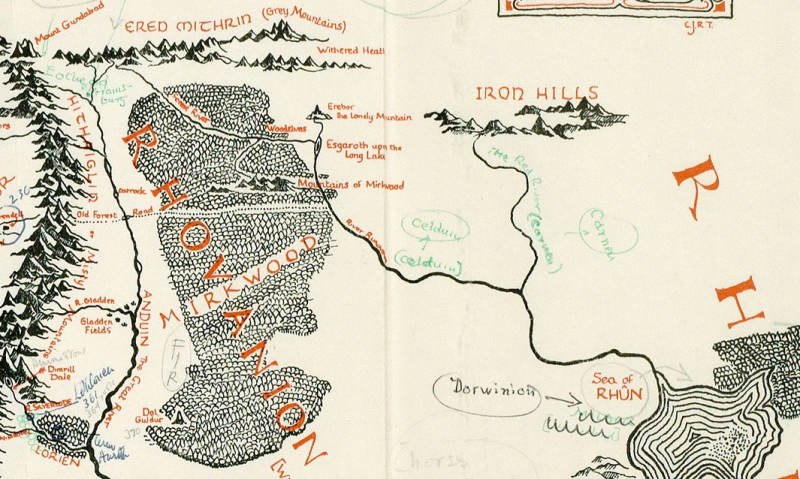 Mount Gundabad
ERED MITHRIN (Grey Mountains)
C.J.R.T.
Withered Heath
IRON HILLS
Erebor
The Lonely Mountain
Forest River
Woodelves
Esgaroth upon the
Long Lake
HITHAIGLIR
Carrock
Mountains of Mirkwood
The Red River (Carnen)
Old Forest Road
River Running
Celduin
(Celduin)
Carnen
RHOVANION
MIRKWOOD
R H
Misty Mountains
R. Gladden
Gladden
Fields
ANDUIN The Great River
Dimrill
Dale
FIR
Dorwinion
Sea of
RHÛN
Dol
Guldur
370
LORIEN